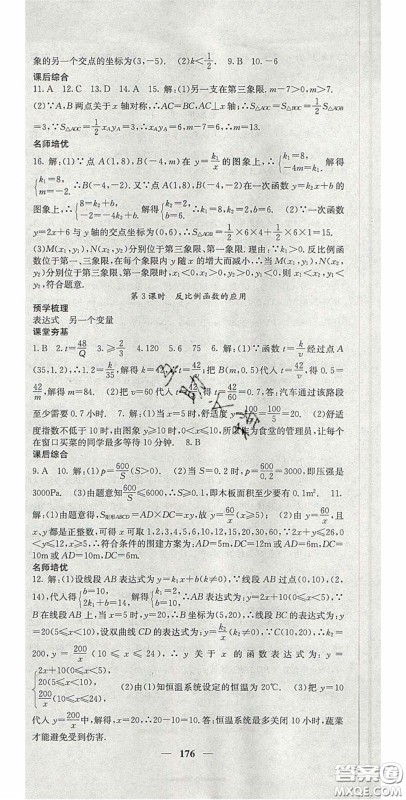 象的另一个交点的坐标为(3,-5). (2)k<1/2. 9.B 10.-6
课后综合
11.A 12.C 13.D 14.A 15.解:(1)另一支在第三象限.m-7>0,m>7.
(2)∵A,B 两点关于 x 轴对称,∴AC=BC,AC⊥x 轴:∴S△AOC=S△BOC=1/2 S△AOB
=3,∵S△AOC=1/2 xAyA=3,∴xAyA=6,m-7=6,∴m=13.
名师培优
16.解:(1)∵点 A(1,8),B(-4,m)在 y=k1/x 的图象上,∴{k1=8, -4m=k1. 解得
{k1=8, m=-2. ∴B(-4,-2).又∵点 A(1,8),B(-4,-2)在一次函数 y=k2x+b 的
图象上,∴{8=k2+b, -2=-4k2+b. 解得{k2=2, b=6. (2)∵一次函数
y=2x+6 与 y 轴的交点坐标为(0,6),
(3)M(x1,y1),N(x2,y2)分别位于第三象限、第一象限.理由:∵k1>0,反比例函
数位于第一、三象限,在每个象限内 y 随 x 的增大而减小,∴当 M(x1,y1),N(x2,
y2)分别位于第三象限、第一象限时,x1<x2,y1<y2,符合题意,∴M(x1,y1),N(x2,
y2)符合题意.
第3课时 反比例函数的应用
预学梳理
表达式 另一个变量
课堂夯基
1.B 2.t=48/Q 3.≥2/3 4.120 5.75 6.解:(1)∵函数 t=k/v 经过点 A
(35,1.2),∴1.2=k/35,解得 k=42,∴t=42/v;把 B(m,0.5)代入 t=42/v,得 0.5=
42/m,解得 m=84. (2)把 v=60 代入 t=42/v,得 t=42/60=0.7,答:汽车通过该路段
至少需要 0.7 小时. 7.解:(1)当 x=5 时,舒适度 y=100/x=100/5=20. (2)舒适
度指数不低于 10 时,由图象 y≥10 时,0<x≤10,所以作为食堂的管理员,让每个
在窗口买菜的同学最多等待 10 分钟. 8.B
课后综合
9.A 10.解:(1)p=600/S(S>0). (2)当 S=0.2 时,p=600/0.2=3000,即压强是
3000Pa. (3)由题意知600/S≤6000,∴S≥0.1,即木板面积至少要有 0.1m².
11.解:(1)由题意知,S矩形ABCD=AD×DC=xy,故 y=60/x(x≥5); (2)由 y=60/x,且
x,y 都是正整数,可得 x 可取 1,2,3,4,5,6,10,12,15,20,30,60,∵2x+y≤26,0
<y≤12,x≥5,∴符合条件的围建方案为:AD=5m,DC=12m 或 AD=6m,DC=
10m 或 AD=10m,DC=6m.
名师培优
12.解:(1)设线段 AB 表达式为 y=k1x+b(k≠0),∵线段 AB 过点(0,10),(2,
14),代入得{b=10, 2k1+b=14, 解得{k1=2, b=10, ∴AB 表达式为:y=2x+10(0≤x<5),∵
B 在线段 AB 上,当 x=5 时,y=20,∴B 坐标为(5,20),∴线段 BC 的表达式为:y=
20(5≤x<10),设双曲线 CD 的表达式为:y=k2/x(k2≠0),∵C(10,20),∴k2
=200,y=200/x(10≤x≤24),∴y 关于 x 的函数表达式为:y=
{2x+10(0≤x<5), 20(5≤x<10), 200/x(10≤x≤24), (2)由(1)知恒温系统设定的恒温为 20℃. (3)把 y=10
代入 y=200/x 中,解得 x=20,∴20-10=10,答:恒温系统最多关闭 10 小时,蔬菜
才能避免受到伤害.
176
答案圈
MXQE.COM